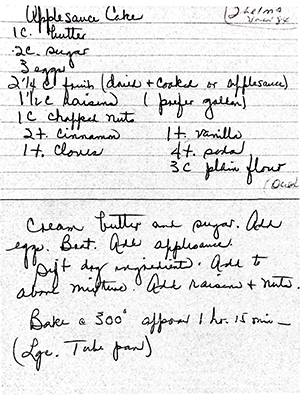 Applesauce Cake
Thelma
1 C. butter
2 C. sugar
3 eggs
2 1/2 C fruit (dried + cooked or applesauce)
1 1/2 C Raisins (prefer golden)
1 C chopped nuts
2 t. cinnamon 1 t. vanilla
1 t. cloves 4 t. soda
3 C plain flour
(Over)
Cream butter and sugar. Add
eggs. Beat. Add applesauce.
Sift dry ingredients. Add to
above mixture. Add raisins + nuts.
Bake @ 300° approx 1 hr. 15 min –
(Lge. Tube pan)